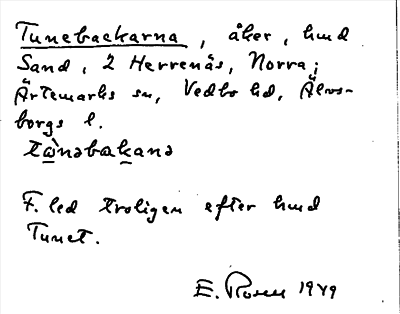 Tunebackarna, åker, hmd
Sand, 2 Herrenäs, Norra;
Ärtemarks sn, Vedbo hd, Älvs-
borgs l.
tɷ̀nəbakanə
F. led troligen efter hmd
Tunet.
E. Rosen 1949